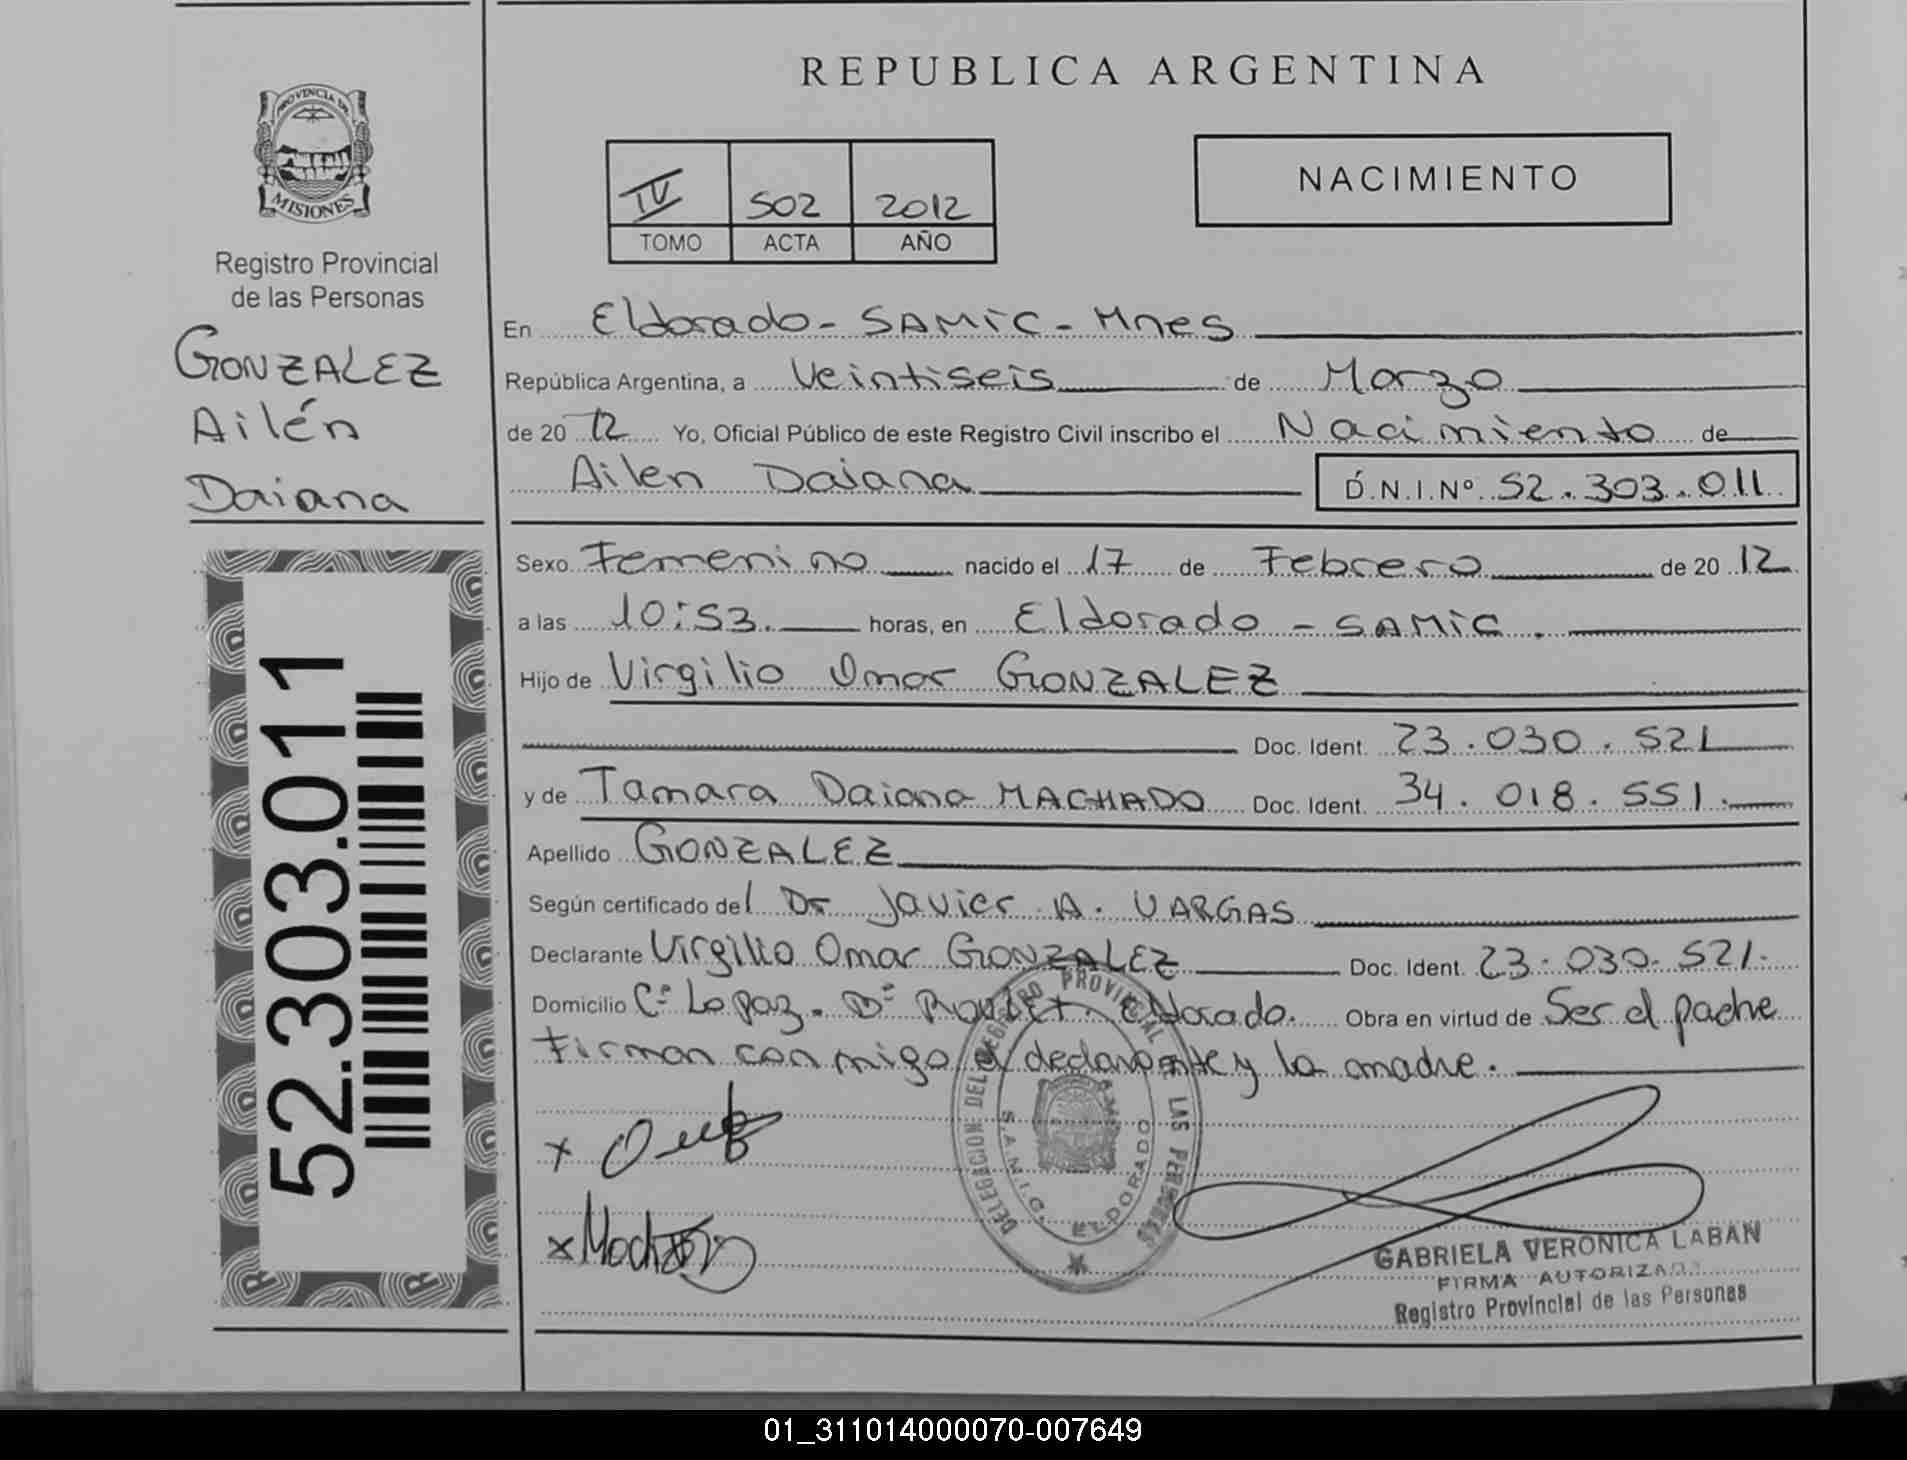 PROVINCIA DE
MISIONES
Registro Provincial
de las Personas
GONZALEZ
Ailén
Daiana
52.303.011
REPUBLICA ARGENTINA
IV 502 2012
TOMO ACTA AÑO
NACIMIENTO
En Eldorado - SAMIC - Mnes
República Argentina, a Veintiseis de Marzo
de 20 12 Yo, Oficial Público de este Registro Civil inscribo el Nacimiento de
Ailen Daiana D.N.I.Nº 52.303.011
Sexo Femenino nacido el 17 de Febrero de 20 12
a las 10:53. horas, en Eldorado - SAMIC.
Hijo de Virgilio Omar GONZALEZ
Doc. Ident. 23.030.521
y de Tamara Daiana MACHADO Doc. Ident. 34.018.551.
Apellido GONZALEZ
Según certificado del Dr Javier A. VARGAS
Declarante Virgilio Omar GONZALEZ Doc. Ident. 23.030.521.
Domicilio Cº La Paz. Bº Eldorado. Obra en virtud de Ser el padre
Firman conmigo el declarante y la madre.
x
x
DELEGACION DEL REGISTRO PROVINCIAL DE LAS PERSONAS
S.A.M.I.C. ELDORADO
GABRIELA VERONICA LABAN
FIRMA AUTORIZADA
Registro Provincial de las Personas
01_311014000070-007649